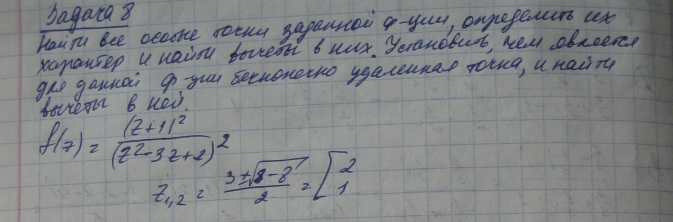 Задача 8
Найти все особые точки заданной ф-ции, определить их
характер и найти вычеты в них. Установить, чем является
для данной ф-ции бесконечно удаленная точка, и найти
вычеты в ней.
f(z) = (z+1)² / (z²-3z+2)²
z₁,₂ = (3±√(9-8))/2 = [2
1